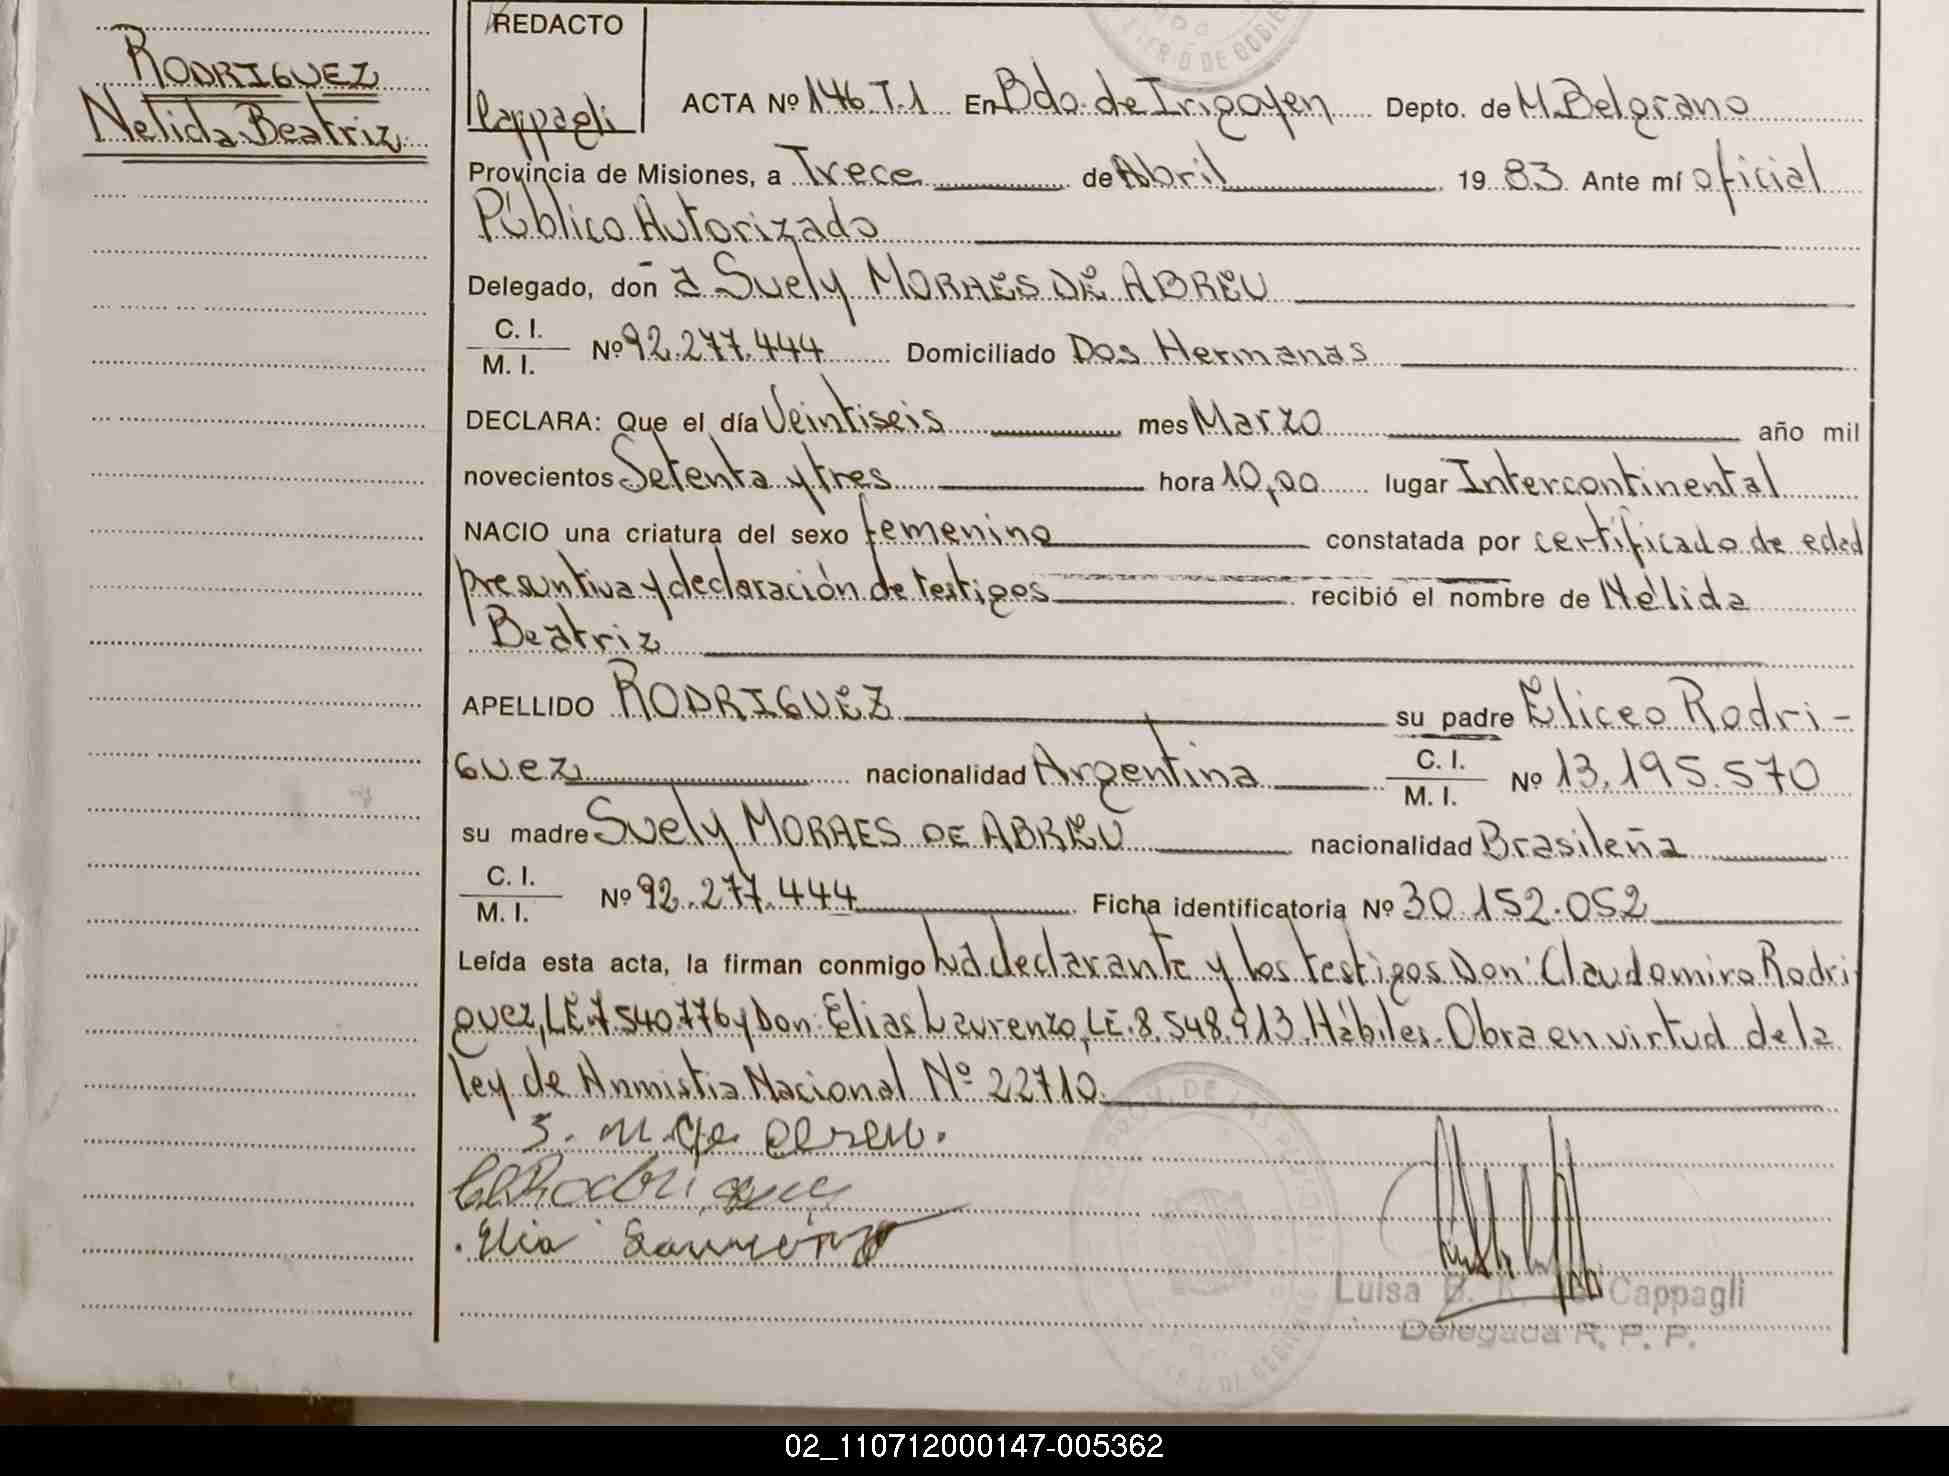 RODRIGUEZ
Nelida Beatriz
REDACTO
Cappagli
ACTA Nº 146 T.1 En Bdo. de Irigoyen Depto. de M. Belgrano
Provincia de Misiones, a Trece de Abril 19 83 Ante mí oficial
Público Autorizado
Delegado, don a Suely MORAES DE ABREU
C. I.
M. I.
Nº 92.277.444 Domiciliado Dos Hermanas
DECLARA: Que el día Veintiseis mes Marzo año mil
novecientos Setenta y tres hora 10,00 lugar Intercontinental
NACIO una criatura del sexo femenino constatada por certificado de edad
presuntiva y declaración de testigos recibió el nombre de Nélida
Beatriz
APELLIDO RODRIGUEZ su padre Eliceo Rodri-
guez nacionalidad Argentina C. I.
M. I. Nº 13.195.570
su madre Suely MORAES DE ABREU nacionalidad Brasileña
C. I.
M. I.
Nº 92.277.444 Ficha identificatoria Nº 30.152.052
Leída esta acta, la firman conmigo La declarante y los testigos Don: Claudomiro Rodri
guez, LE.7.540.776 y Don: Elias Laurenzo, LE.8.548.913. Hábiles. Obra en virtud de la
ley de Anmistia Nacional Nº 22710.
Luisa B. Cappagli
Delegada R. P. P.
02_110712000147-005362